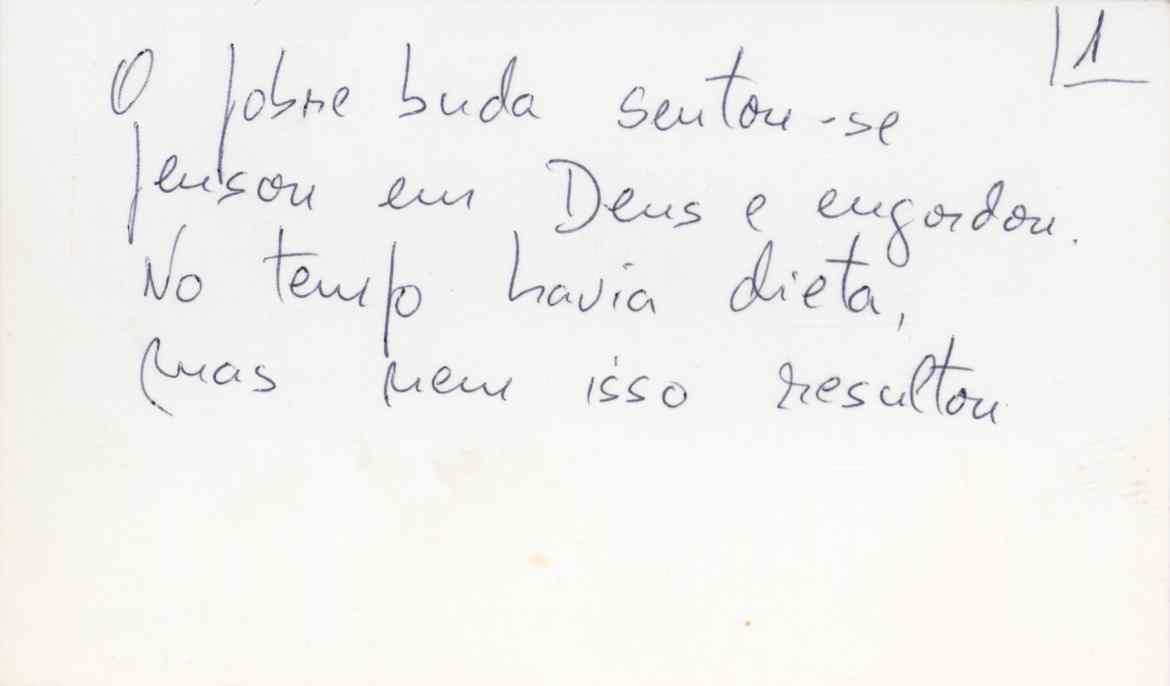 1
O pobre buda sentou-se
pensou em Deus e engordou.
No tempo havia dieta,
mas nem isso resultou